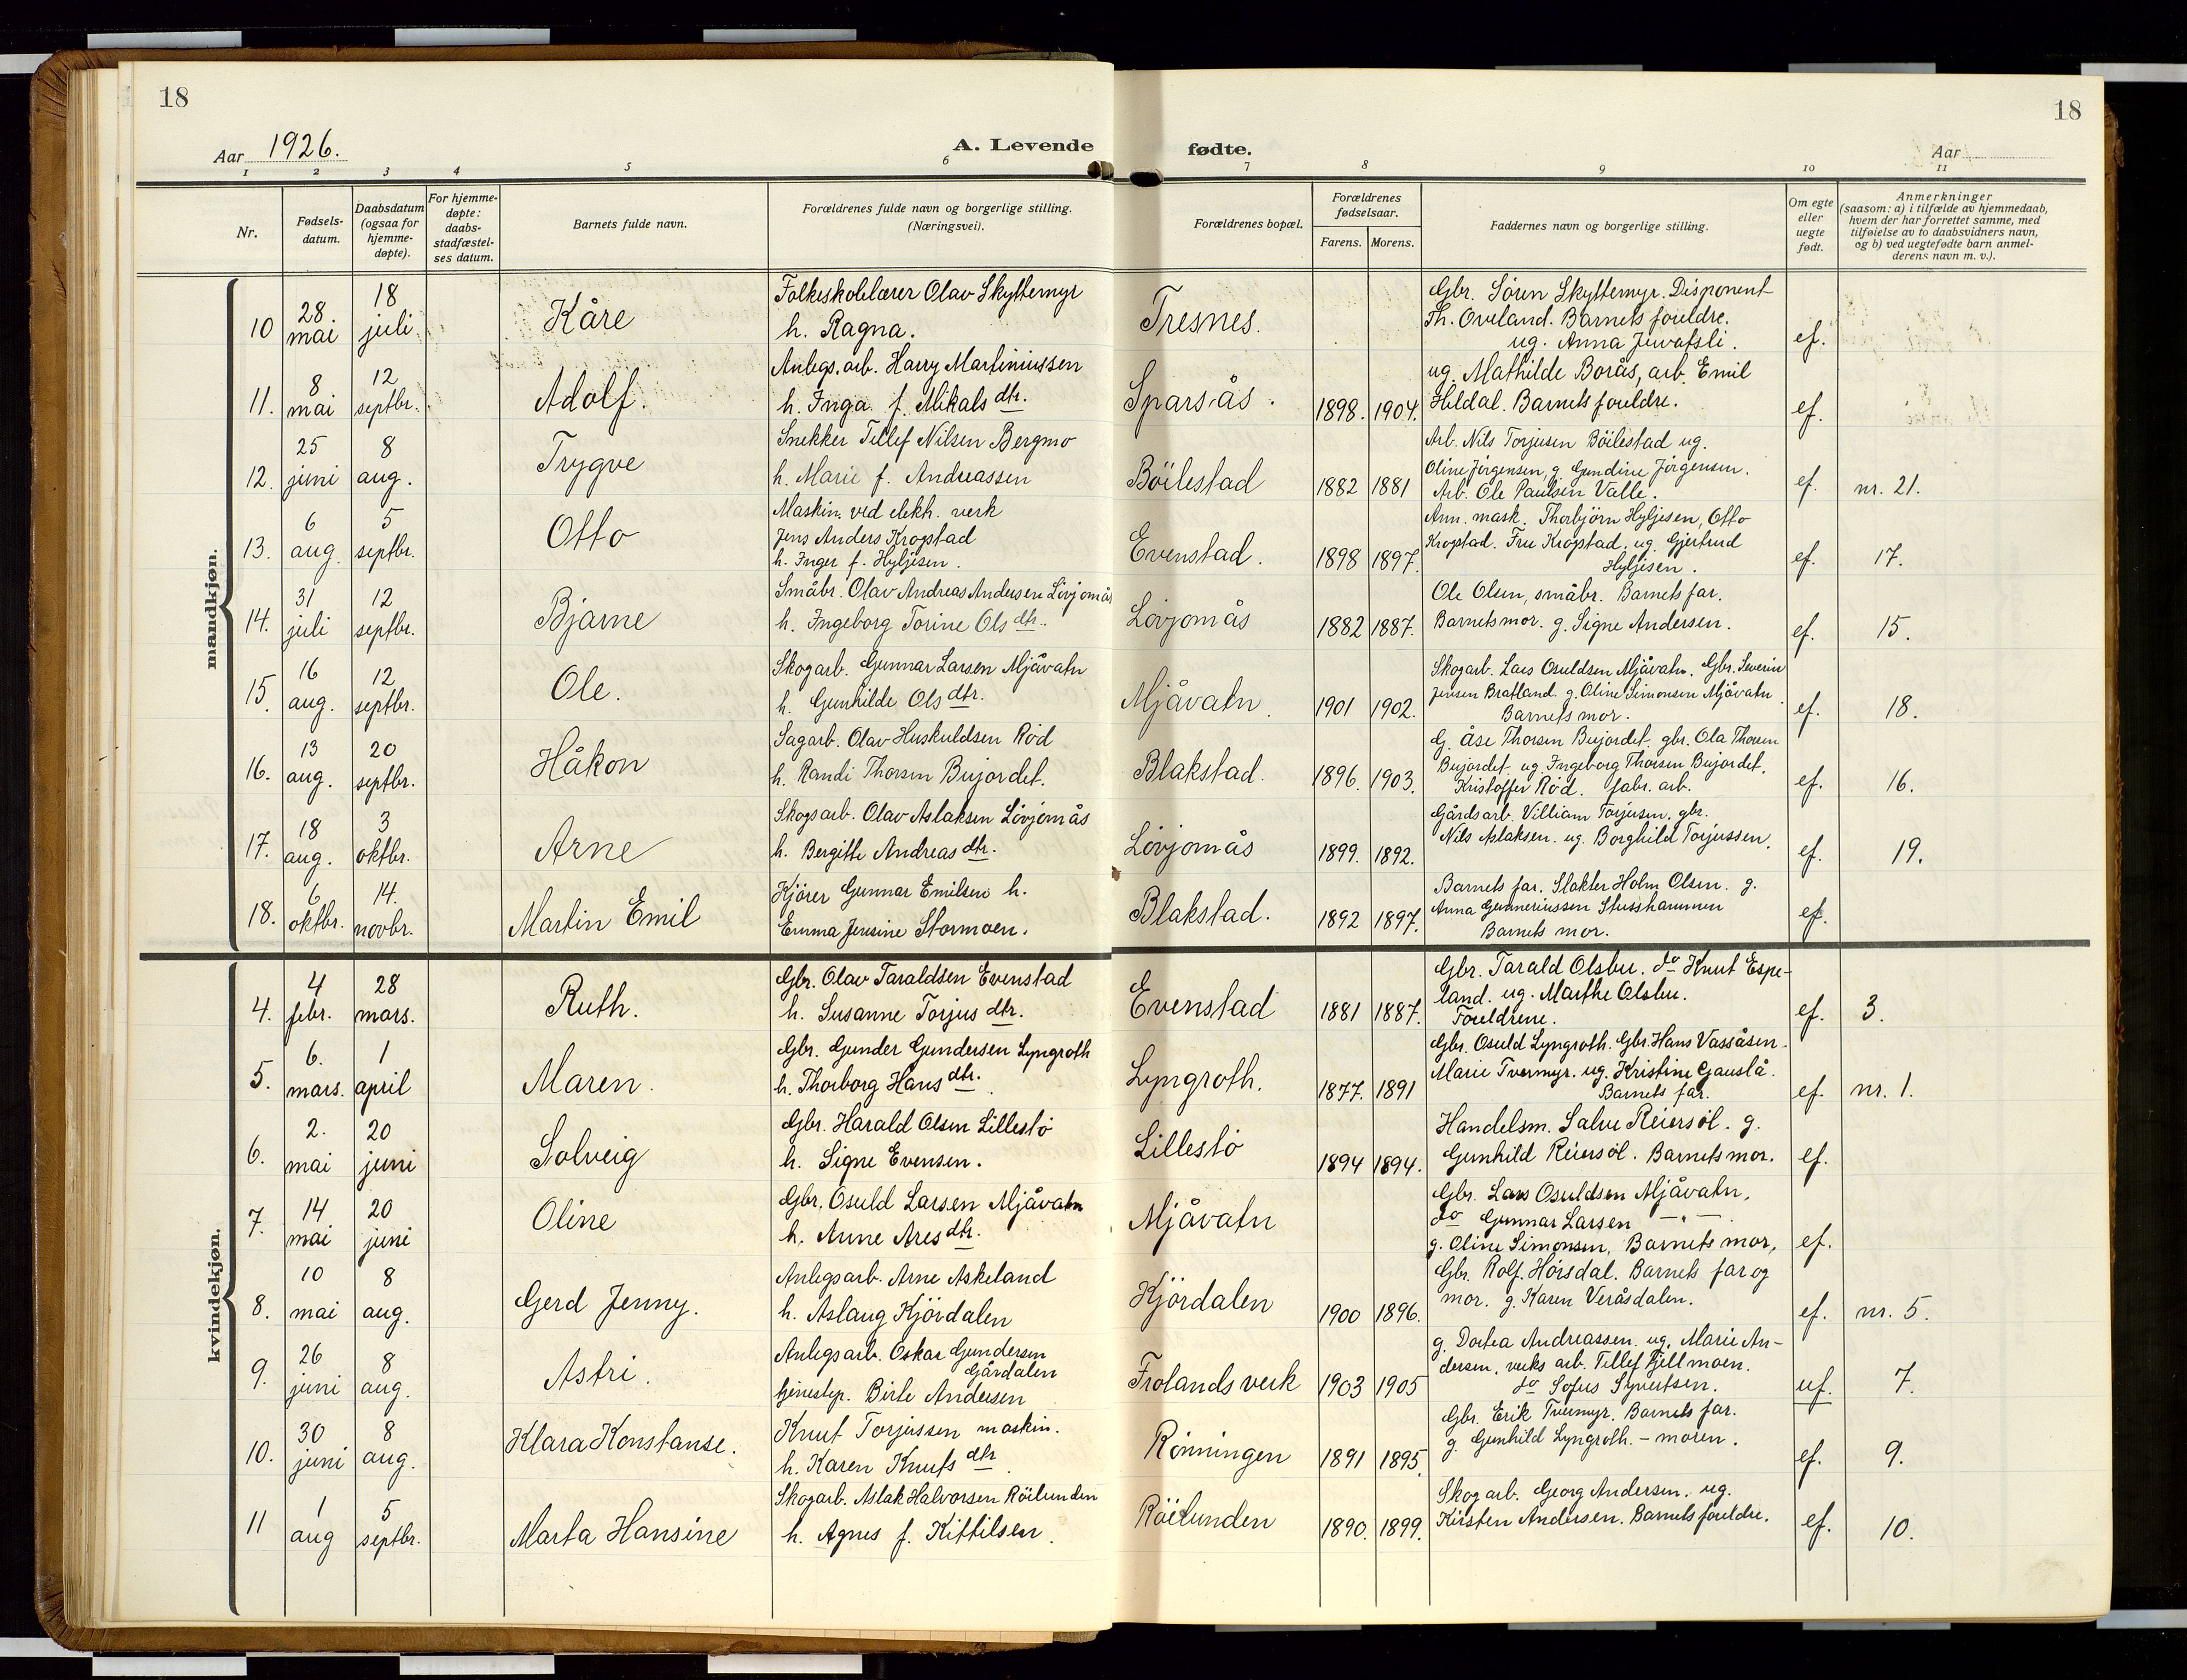 18
18
Aar 1926.
A. Levende fødte.
Aar
1 2 3 4 5 6 7 8 9 10 11
Nr.
Fødsels-datum.
Daabsdatum (ogsaa for hjemme-døpte).
For hjemme-døpte: daabs-stadfæstel-ses datum.
Barnets fulde navn.
Forældrenes fulde navn og borgerlige stilling. (Næringsvei).
Forældrenes bopæl.
Forældrenes fødselsaar.
Farens. Morens.
Faddernes navn og borgerlige stilling.
Om egte eller uegte født.
Anmerkninger (saasom: a) i tilfælde av hjemmedaab, hvem der har forrettet samme, med tilføielse av to daabsvidners navn, og b) ved uegtefødte barn anmel-derens navn m. v.).
mandkjøn.
10 28. mai 18 juli Kåre
Folkeskolelærer Olav Skyttemyr
h. Ragna.
Tresnes.
Gbr. Sören Skyttemyr. Disponent
Th. Oveland. Barnets foreldre.
ug. Anna
ef.
11. 8 mai 12 septbr. Adolf.
Anlegs. arb. Harry Martiniussen
h. Inga f. Mikals dtr.
Sparsås.
1898. 1904.
ug. Mathilde Borås, arb. Emil
Heldal. Barnets foreldre.
ef.
12. 25 juni 8 aug. Trygve
Snekker Tellef Nilsen Bergmo
h. Marie f. Andreassen
Böilestad
1882 1881
Arb. Nils Torjusen Böilestad ug.
Oline Jörgensen, g. Gundine Jörgensen.
Arb. Ole Paulsen Valle.
ef. nr. 21.
13. 6 aug. 5 septbr. Otto
Maskin. ved elekh. verk
Jens Anders Kropstad
h. Inger f. Hyljesen.
Evenstad.
1898 1897.
Ann. mask. Thorbjörn Hyljesen, Otto
Kropstad. Fru Kropstad. ug. Gjertrud
Hyljesen.
ef. 17.
14. 31 juli 12 septbr. Bjarne
Småbr. Olav Andreas Andersen Lövjomås
h. Ingeborg Torine Ols dtr.
Lövjomås
1882 1887.
Ole Olsen, småbr. Barnets far.
Barnets mor. g. Signe Andersen.
ef. 15.
15. 16 aug. 12 septbr. Ole.
Skogarb. Gunnar Larsen Mjåvatn
h. Gunhilde Ols dtr.
Mjåvatn.
1901 1902.
Skogarb. Lars Osuldsen Mjåvatn. Gbr. Severin
Jensen Bratland. g. Oline Simonsen Mjåvatn.
Barnets mor.
ef. 18.
16. 13 aug. 20 septbr. Håkon
Sagarb. Olav Huskuldsen Röd
h. Randi Thorsen Bujordet.
Blakstad.
1896. 1903.
G. Åse Thorsen Bujordet. gbr. Ola Thorsen
Bujordet. ug. Ingeborg Thorsen Bujordet.
Kristoffer Röd. fabr. arb.
ef. 16.
17. 18 aug. 3 oktbr. Arne
Skogsarb. Olav Aslaksen Lövjomås
h. Bergitte Andreas dtr.
Lövjomås
1899. 1892.
Gårdsarb. Villiam Torjusen. gbr.
Nils Aslaksen. ug. Borghild Torjussen.
ef. 19.
18. 6 oktbr. 14. novbr. Martin Emil
Kjörer Gunnar Emilsen h.
Emma Jensine Stormoen.
Blakstad.
1892 1897.
Barnets far. Slakter Holm Olsen. g.
Anna Gunneriussen
Barnets mor.
ef.
kvindekjøn.
4. 4 febr. 28 mars. Ruth.
Gbr. Olav Taraldsen Evenstad
h. Susanne Torjus dtr.
Evenstad
1881 1887.
Gbr. Tarald Olsbu. do Knut Espe-
land. ug. Marthe Olsbu.
Foreldrene.
ef. 3.
5. 6. mars. 1 april Maren.
Gbr. Gunder Gundersen Lyngroth
h. Thorborg Hans dtr.
Lyngroth.
1877. 1891
Gbr. Osuld Lyngroth. Gbr. Hans Vassåsen.
Marie Tvermyr. ug. Kristine Gauslå.
Barnets far.
ef. nr. 1.
6. 2. mai 20 juni Solveig
Gbr. Harald Olsen Lillestö
h. Signe Evensen.
Lillestö
1894 1894.
Handelsm. Salve Reiersöl. g.
Gunhild Reiersöl. Barnets mor.
ef.
7. 14 mai 20 juni Oline
Gbr. Osuld Larsen Mjåvatn
h. Anne Ares dtr.
Mjåvatn
Gbr. Lars Osuldsen Mjåvatn,
do Gunnar Larsen — " —
g. Oline Simonsen, Barnets mor,
ef.
8. 10 mai 8 aug. Gerd Jenny.
Anlegsarb. Arne Askeland
h. Aslaug Kjördalen
Kjördalen
1900 1896.
Gbr. Rolf. Hörsdal. Barnets far og
mor. g. Karen Veråsdalen.
ef. nr. 5.
9. 26 juni 8 aug. Astri.
Anlegsarb. Oskar Gundersen
Gårdalen
tjenestep. Birte Andersen
Frolands verk
1903 1905
g. Dortea Andreassen. ug. Marie An-
dersen. verks arb. Tellef Fjellmoen.
do Sofus Syvertsen.
uf. 7.
10. 30 juni 8 aug. Klara Konstanse.
Knut Torjussen maskin.
h. Karen Knuts dtr.
Rönningen
1891 1895.
Gbr. Erik Tvermyr. Barnets far.
g. Gunhild Lyngroth. - moren.
ef. 9.
11 1 aug 5 septbr. Marta Hansine
Skogarb. Aslak Halvorsen Röilunden
h. Agnes f. Kittilsen.
Röilunden
1890. 1899.
Skogarb. Georg Andersen. ug.
Kirsten Andersen. Barnets foreldre.
ef. 10.